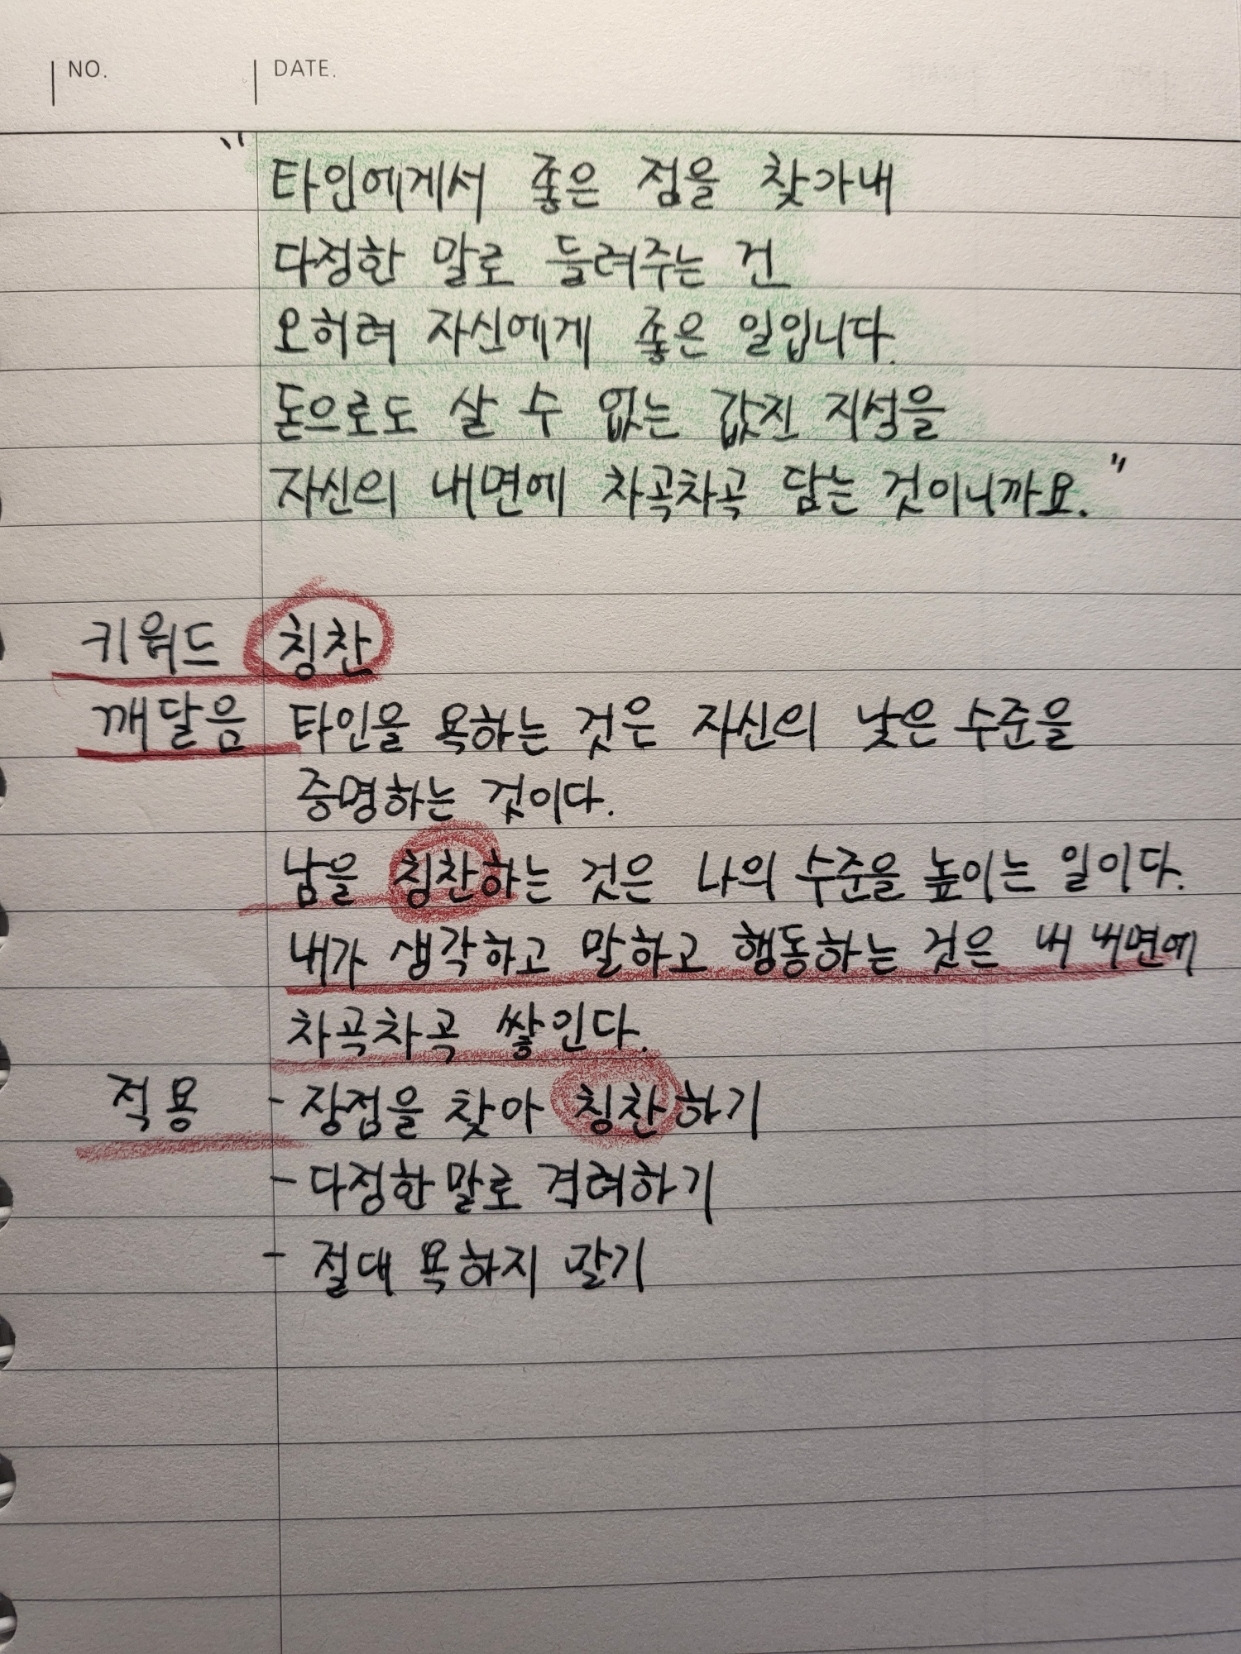 NO. DATE.
"타인에게서 좋은 점을 찾가내
다정한 말로 들려주는 건
오히려 자신에게 좋은 일입니다.
돈으로도 살 수 없는 값진 지성을
자신의 내면에 차곡차곡 담는 것이니까요."
키워드 칭찬
깨달음 타인을 욕하는 것은 자신의 낮은 수준을
증명하는 것이다.
남을 칭찬하는 것은 나의 수준을 높이는 일이다.
내가 생각하고 말하고 행동하는 것은 내 내면에
차곡차곡 쌓인다.
적용 - 장점을 찾아 칭찬하기
- 다정한 말로 격려하기
- 절대 욕하지 말기